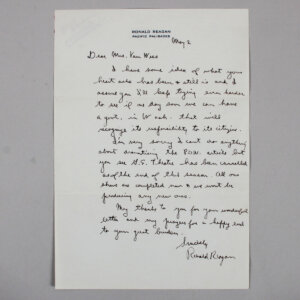 RONALD REAGAN
PACIFIC PALISADES
May 2
Dear Mrs. Van Wees
I have some idea of what your
heart ache has been & still is and I
assure you I'll keep trying even harder
to see if one day soon we can have
a govt. in Wash. that will
recognize its responsibility to its citizens.
I'm very sorry I can't do anything
about dramatizing the POW article but
you see G.E. Theatre has been cancelled
as of the end of this season. All our
shows are completed now & we won't be
producing any new ones.
My thanks to you for your wonderful
letter and my prayers for a happy end to
your great burden.
Sincerely
Ronald Reagan